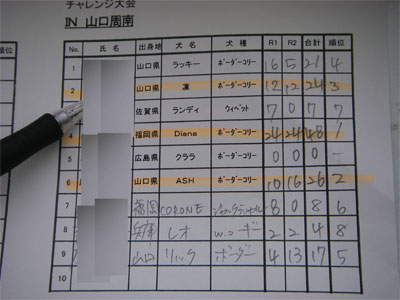 チャレンジ大会
IN 山口周南
順位
No. 氏名 出身地 犬名 犬種 R1 R2 合計 順位
1 山口県 ラッキー ボーダーコリー 16 5 21 4
2 山口県 凛 ボーダーコリー 12 12 24 3
佐賀県 ランディ ウィペット 7 0 7 7
4 福岡県 Diana ボーダーコリー 24 24 48 1
5 広島県 クララ ボーダーコリー 0 0 0 -
6 山口県 ASH ボーダーコリー 10 16 26 2
7 福岡 CORONE 8 0 8 6
8 兵庫 レオ 2 2 4 8
9 山口 リック ボーダー 4 13 17 5
10